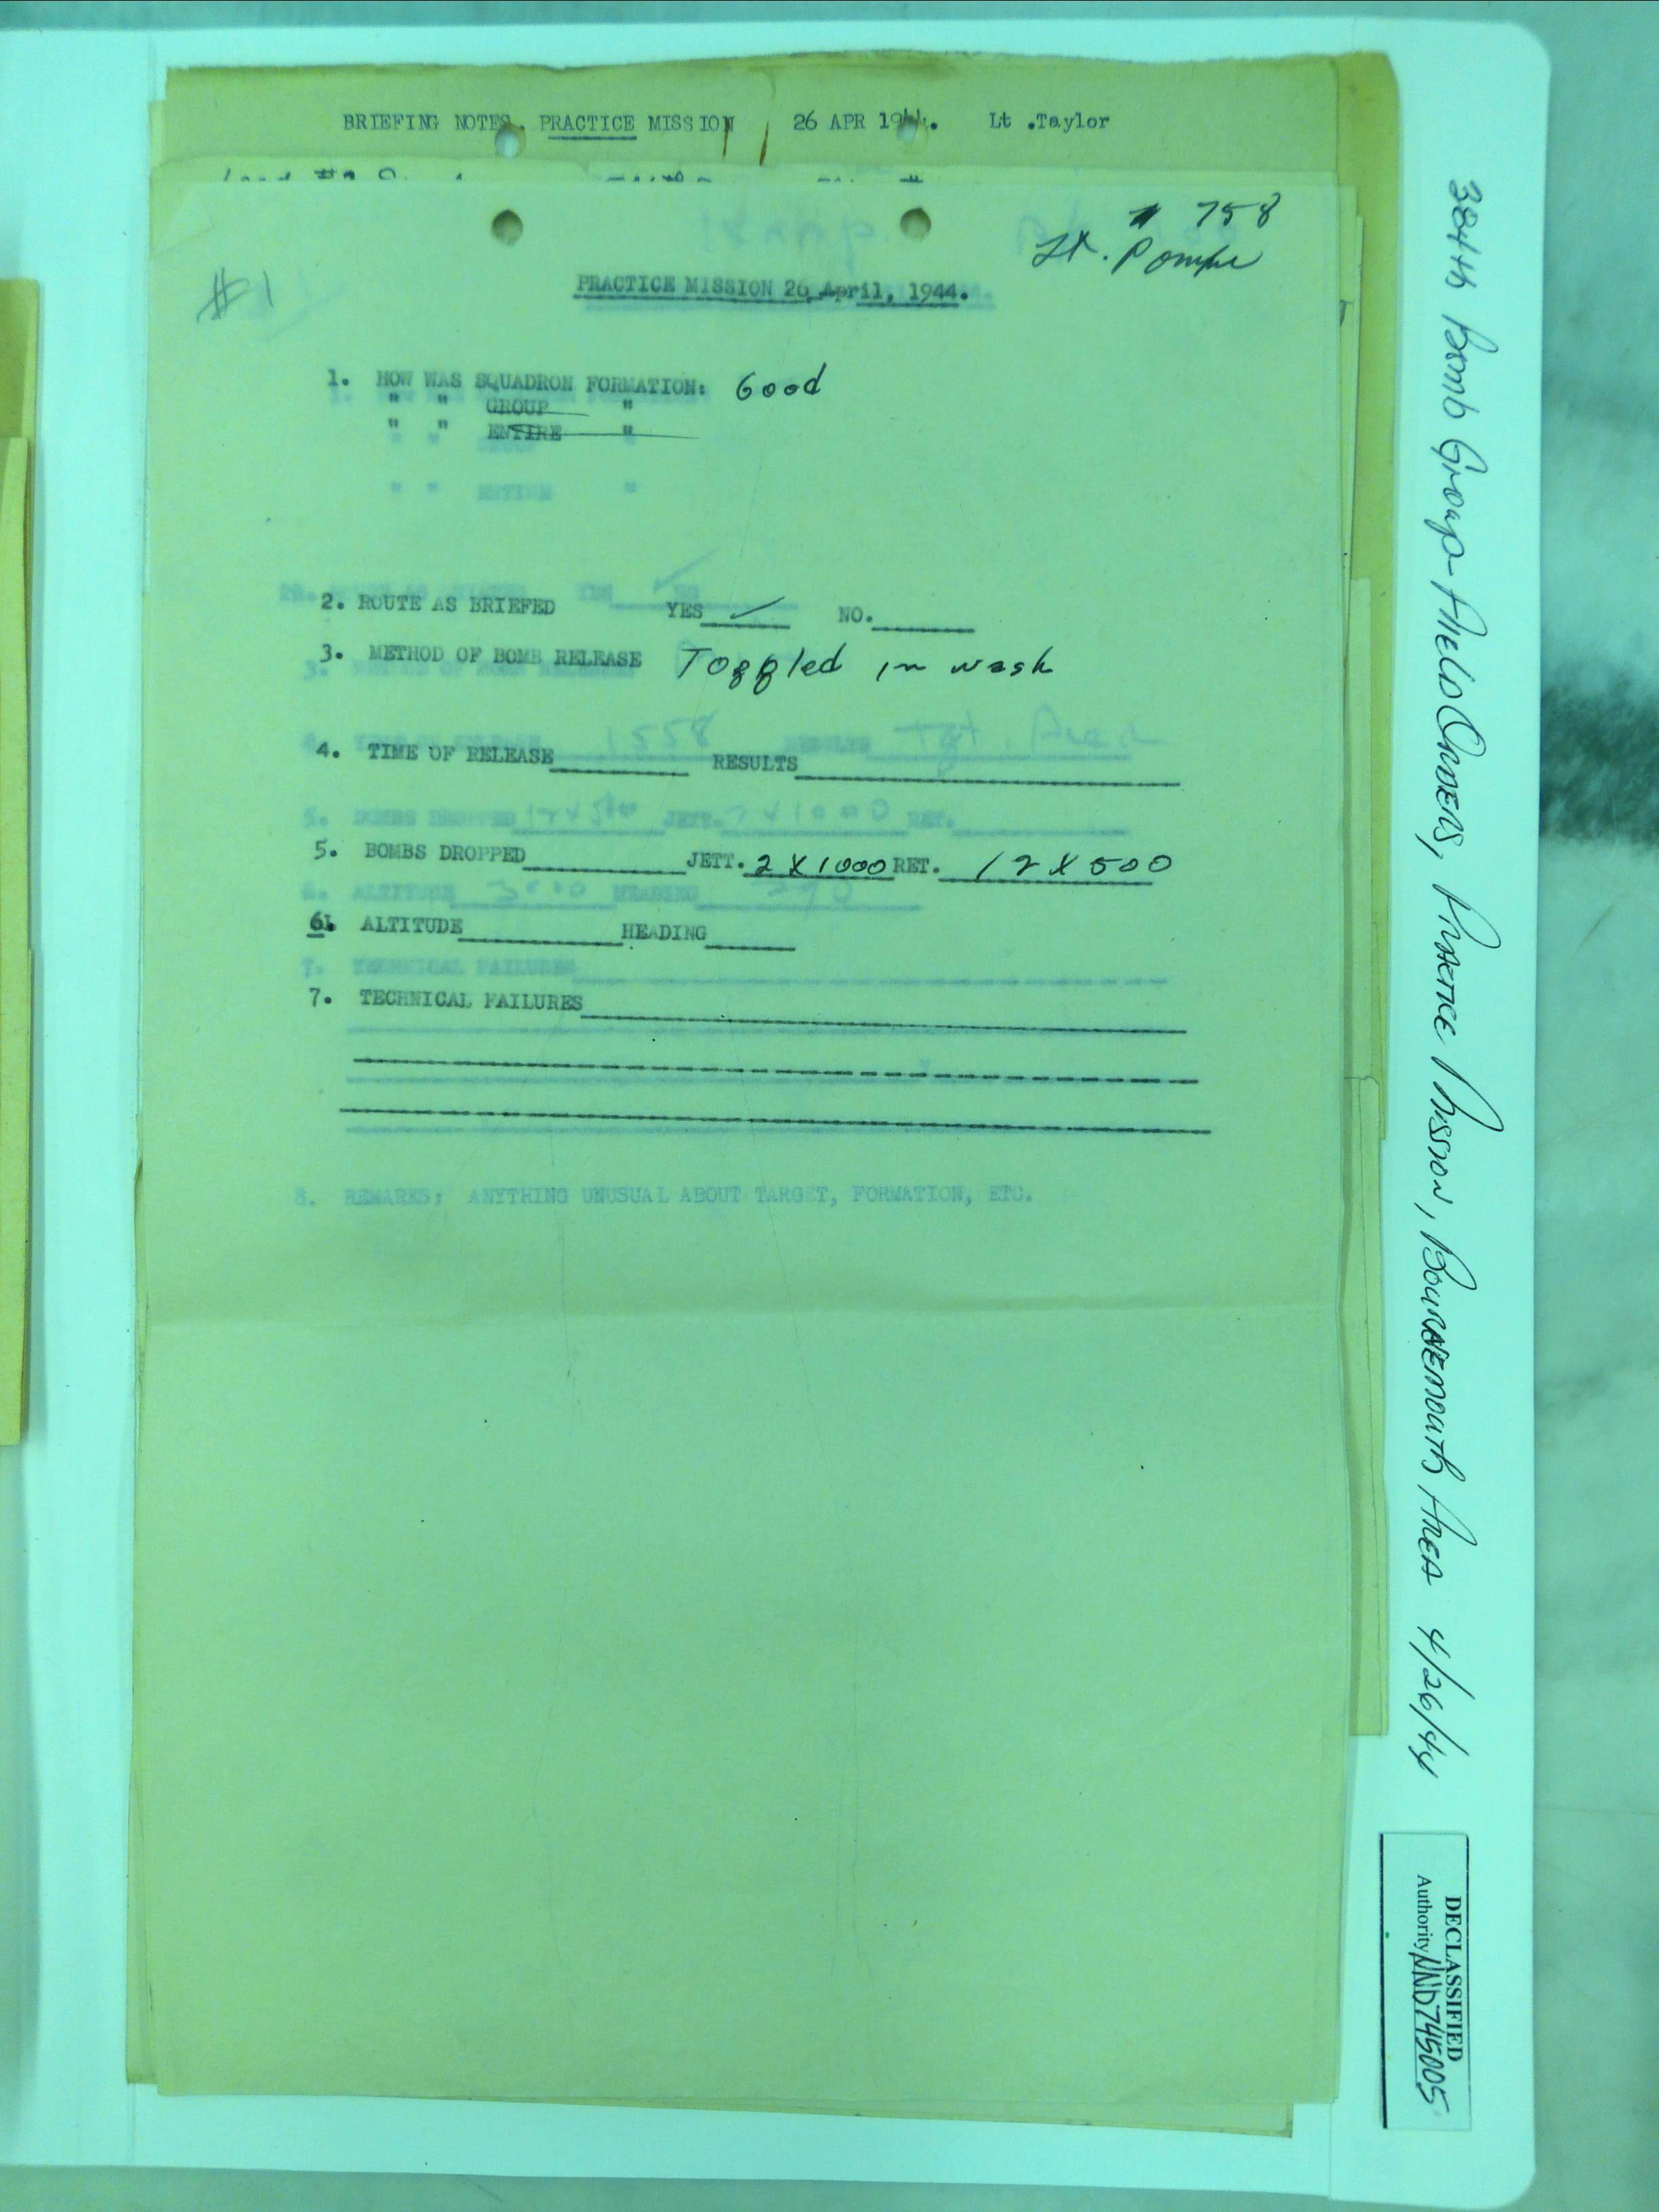 BRIEFING NOTES. PRACTICE MISSION 26 APR 1944. Lt .Taylor
# 758
Lt. Pompe
#1
PRACTICE MISSION 26 April, 1944.
1. HOW WAS SQUADRON FORMATION: Good
" " GROUP "
" " ENTIRE "
" " ENTIRE "
2. ROUTE AS BRIEFED YES ✓ NO.
3. METHOD OF BOMB RELEASE Toggled in wash
1558 RESULTS Tgt. Area
4. TIME OF RELEASE RESULTS
5. BOMBS DROPPED 12x500 JETT. 2x1000 RET.
5. BOMBS DROPPED JETT. 2 X 1000 RET. 12 X 500
6. ALTITUDE HEADING
6. ALTITUDE HEADING
7. TECHNICAL FAILURES
7. TECHNICAL FAILURES
8. REMARKS; ANYTHING UNUSUAL ABOUT TARGET, FORMATION, ETC.
384th Bomb Group-Field Orders, Practice Mission, Bournemouth Area 4/26/44
DECLASSIFIED
Authority NND745005